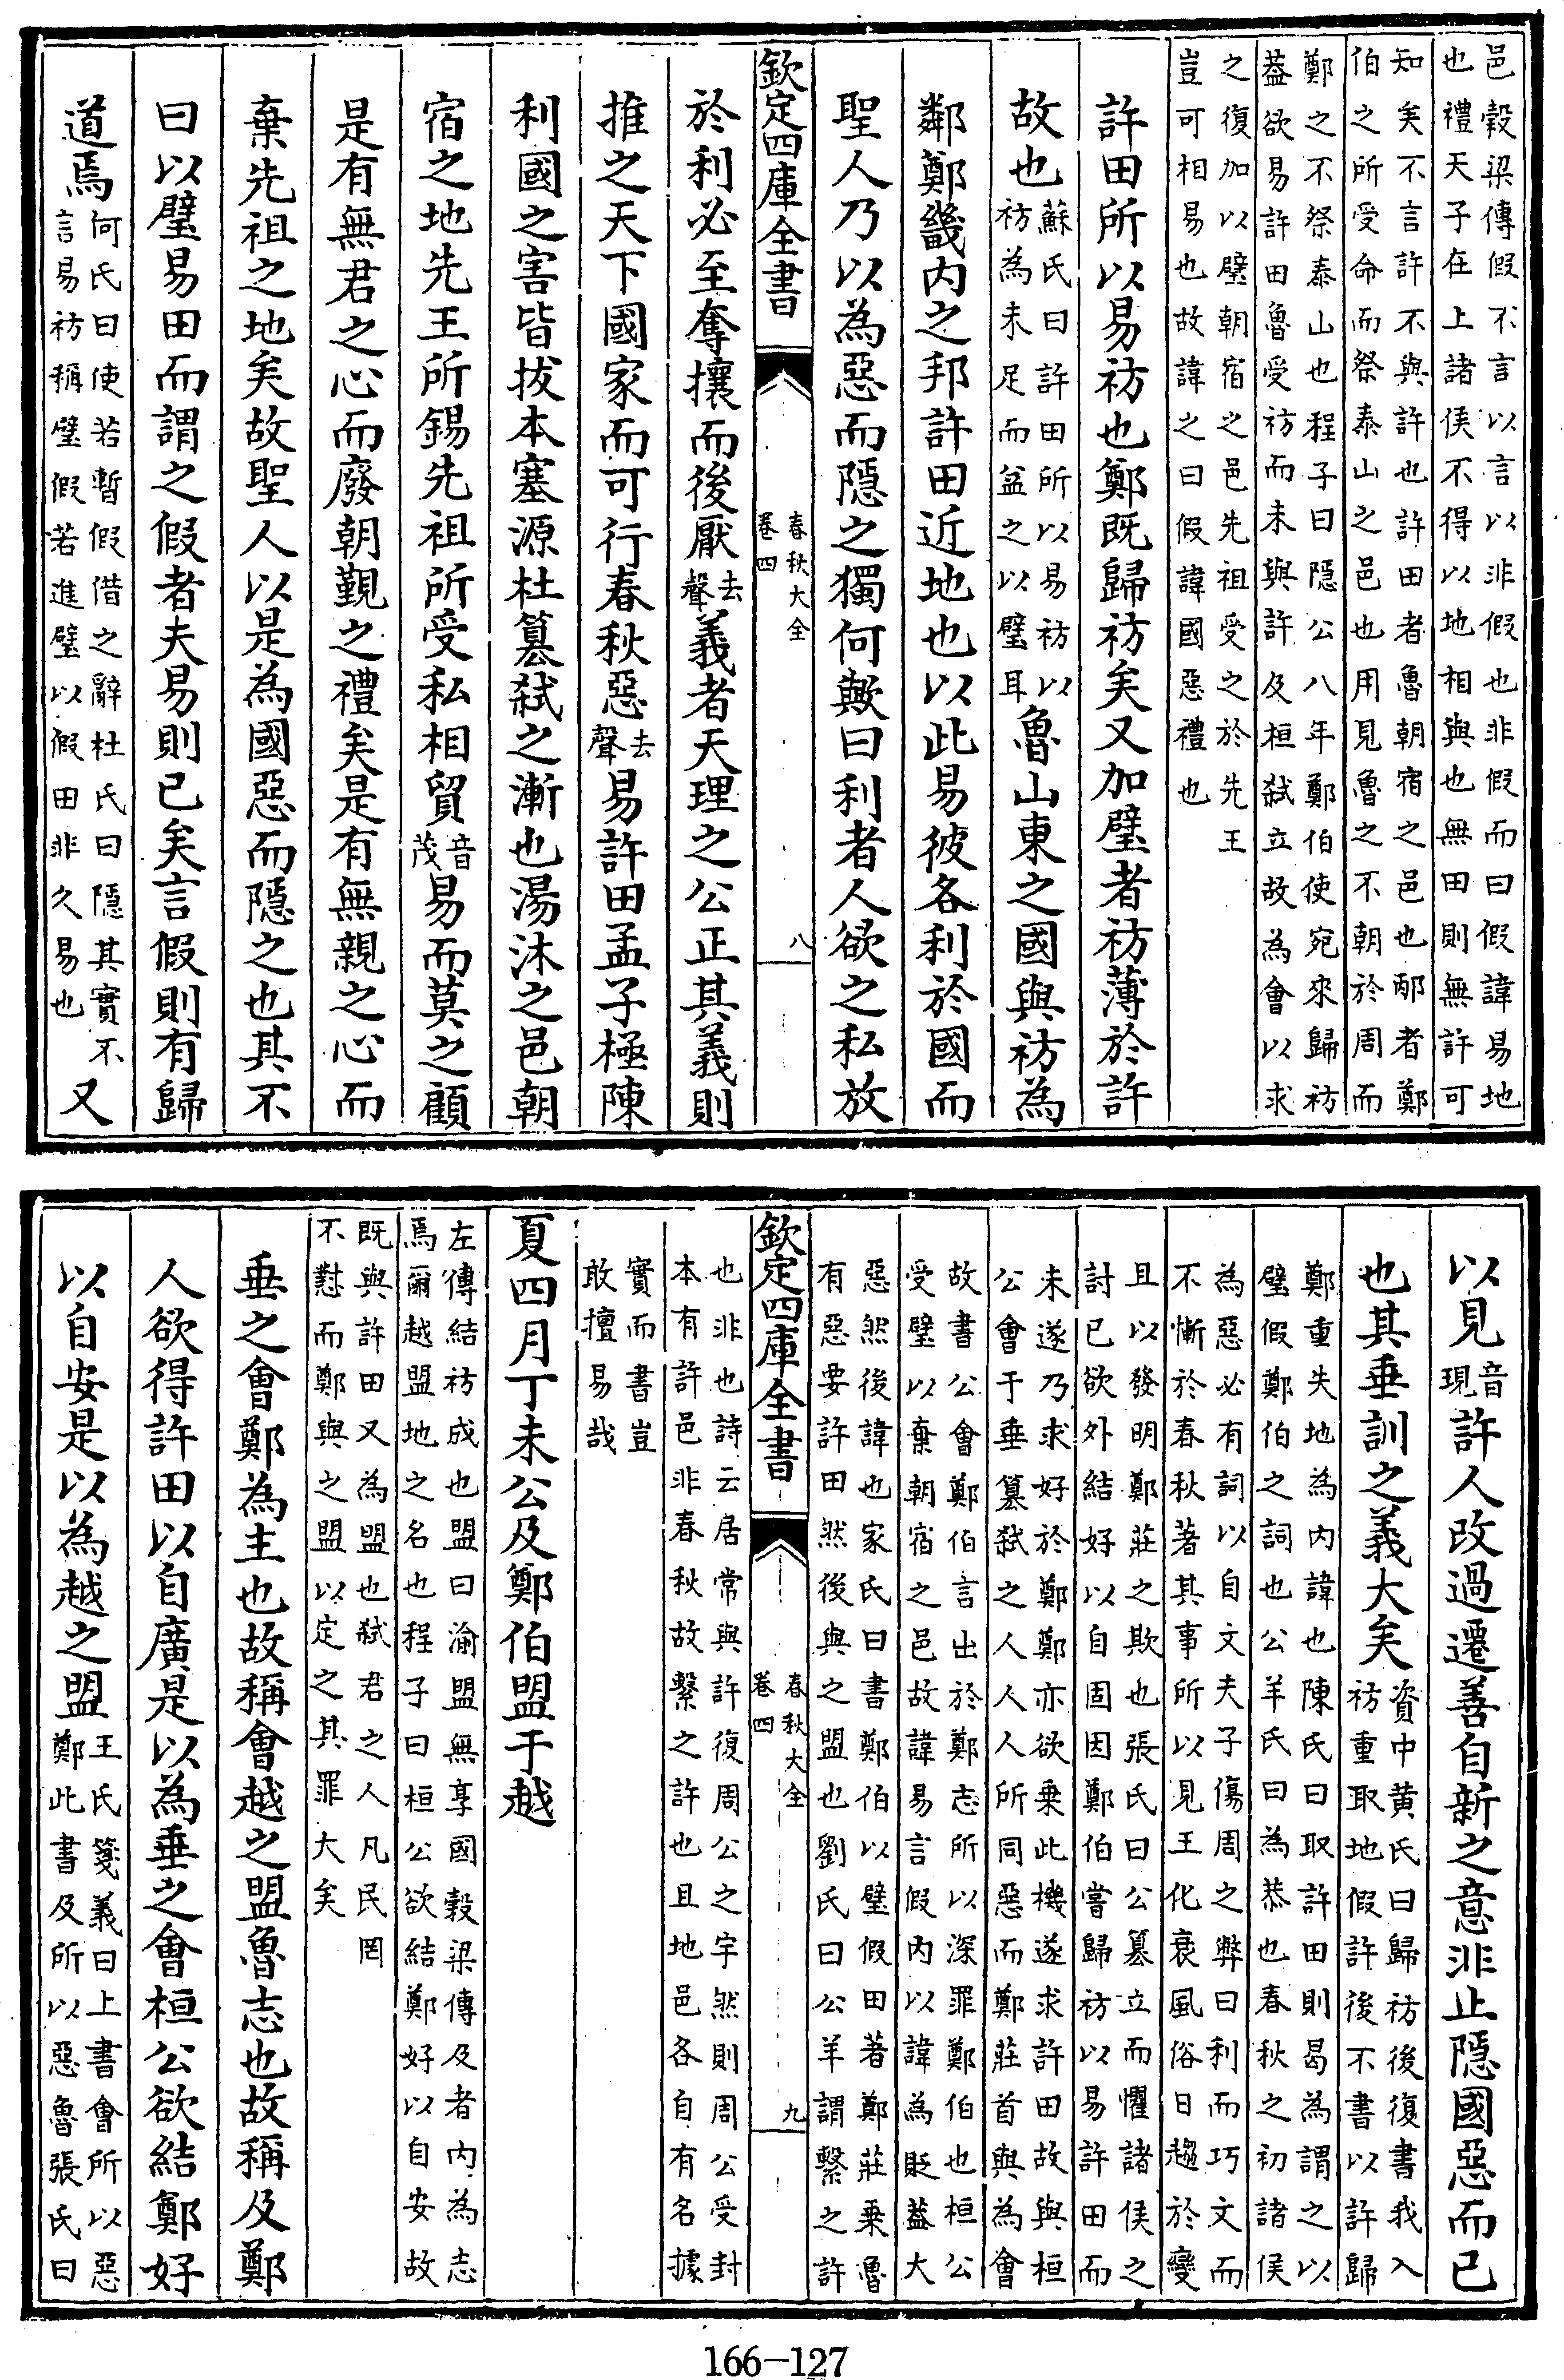 邑穀梁傳假不言以言以非假也非假而曰假諱易地
也禮天子在上諸侯不得以地相與也無田則無許可
知矣不言許不與許也許田者魯朝宿之邑也邴者鄭
伯之所受命而祭泰山之邑也用見魯之不朝於周而
鄭之不祭泰山也程子曰隱公八年鄭伯使宛來歸祊
葢欲易許田魯受祊而未與許及桓弑立故為會以求
之復加以璧朝宿之邑先祖受之於先王
豈可相易也故諱之曰假諱國惡禮也
許田所以易祊也鄭既歸祊矣又加璧者祊薄於許
故也蘇氏曰許田所以易祊以祊為未足而益之以璧耳魯山東之國與祊為
鄰鄭畿内之邦許田近地也以此易彼各利於國而
聖人乃以為惡而隱之獨何歟曰利者人欲之私放
欽定四庫全書
春秋大全
卷四
八
於利必至奪攘而後厭去聲義者天理之公正其義則
推之天下國家而可行春秋惡去聲易許田孟子極陳
利國之害皆拔本塞源杜簒弑之漸也湯沐之邑朝
宿之地先王所錫先祖所受私相貿音茂易而莫之顧
是有無君之心而廢朝覲之禮矣是有無親之心而
棄先祖之地矣故聖人以是為國惡而隱之也其不
曰以璧易田而謂之假者夫易則已矣言假則有歸
道焉何氏曰使若暫假借之辭杜氏曰隱其實不言易祊稱璧假若進璧以假田非久易也又
以見音現許人改過遷善自新之意非止隱國惡而已
也其垂訓之義大矣資中黃氏曰歸祊後復書我入祊重取地假許後不書以許歸
鄭重失地為内諱也陳氏曰取許田則曷為謂之以
璧假鄭伯之詞也公羊氏曰為恭也春秋之初諸侯
為惡必有詞以自文夫子傷周之弊曰利而巧文而
不慚於春秋著其事所以見王化衰風俗日趨於變
且以發明鄭莊之欺也張氏曰公簒立而懼諸侯之
討已欲外結好以自固因鄭伯嘗歸祊以易許田而
未遂乃求好於鄭鄭亦欲乗此機遂求許田故與桓
公會于垂簒弑之人人人所同惡而鄭莊首與為會
故書公會鄭伯言出於鄭志所以深罪鄭伯也桓公
受璧以棄朝宿之邑故諱易言假内以諱為貶葢大
惡然後諱也家氏曰書鄭伯以璧假田著鄭莊乗魯
有惡要許田然後與之盟也劉氏曰公羊謂繫之許
欽定四庫全書
春秋大全
卷四
九
也非也詩云居常與許復周公之宇然則周公受封
本有許邑非春秋故繫之許也且地邑各自有名據
實而書豈
敢擅易哉
夏四月丁未公及鄭伯盟于越
左傳結祊成也盟曰渝盟無享國穀梁傳及者内為志
焉爾越盟地之名也程子曰桓公欲結鄭好以自安故
既與許田又為盟也弑君之人凡民罔
不懟而鄭與之盟以定之其罪大矣
垂之會鄭為主也故稱會越之盟魯志也故稱及鄭
人欲得許田以自廣是以為垂之會桓公欲結鄭好
以自安是以為越之盟王氏箋義曰上書會所以惡鄭此書及所以惡魯張氏曰
166-127